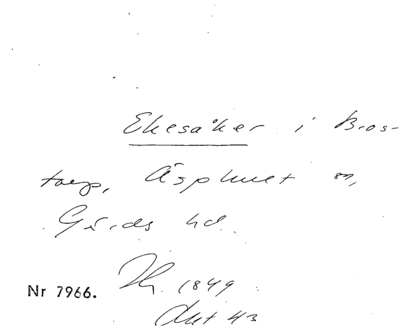 Ekesåker i Bros-
torp, Äsphult sn,
Gärds hd.
Nr 7966. 1849
Akt 43